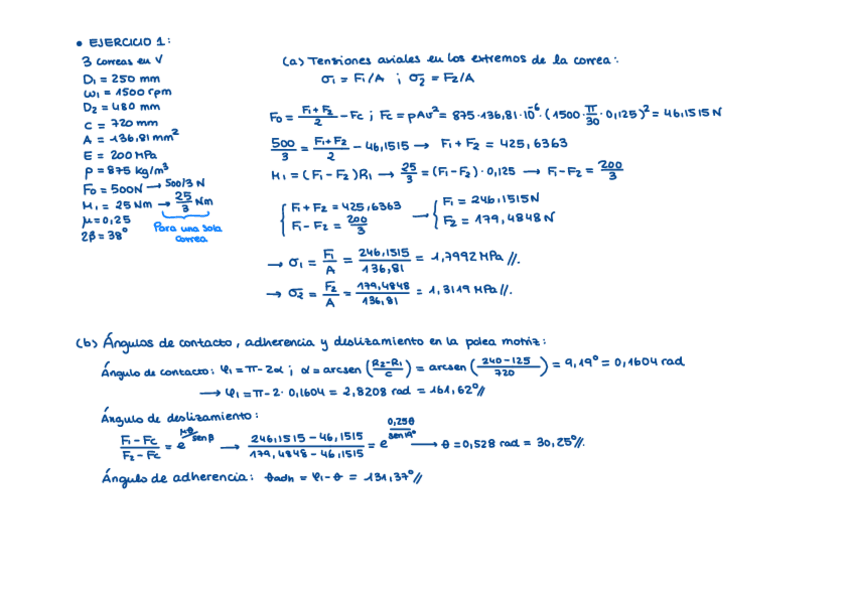 • EJERCICIO 1:
3 correas en V
D₁ = 250 mm
ω₁ = 1500 rpm
D₂ = 480 mm
C = 720 mm
A = 136,81 mm²
E = 200 MPa
ρ = 875 kg/m³
F₀ = 500N → 500/3 N
M₁ = 25 Nm → 25/3 Nm
μ = 0,25
2β = 38°
Para una sola correa
(a) Tensiones axiales en los extremos de la correa:
σ₁ = F₁/A ; σ₂ = F₂/A
F₀ = (F₁+F₂)/2 − Fc ; Fc = ρAv² = 875·136,81·10⁻⁶·(1500·π/30·0,125)² = 46,1515 N
500/3 = (F₁+F₂)/2 − 46,1515 → F₁ + F₂ = 425,6363
M₁ = (F₁−F₂)R₁ → 25/3 = (F₁−F₂)·0,125 → F₁−F₂ = 200/3
{ F₁+F₂ = 425,6363 → { F₁ = 246,1515N
F₁−F₂ = 200/3 F₂ = 179,4848N
→ σ₁ = F₁/A = 246,1515/136,81 = 1,7992 MPa //.
→ σ₂ = F₂/A = 179,4848/136,81 = 1,3119 MPa //.
(b) Ángulos de contacto, adherencia y deslizamiento en la polea motriz:
Ángulo de contacto: φ₁ = π−2α ; α = arcsen ((R₂−R₁)/C) = arcsen ((240−125)/720) = 9,19° = 0,1604 rad
→ φ₁ = π−2·0,1604 = 2,8208 rad = 161,62° //
Ángulo de deslizamiento:
(F₁−Fc)/(F₂−Fc) = e^(μθ/senβ) → (246,1515−46,1515)/(179,4848−46,1515) = e^(0,25θ/sen19°) → θ = 0,528 rad = 30,25° //.
Ángulo de adherencia: θadh = φ₁−θ = 131,37° //